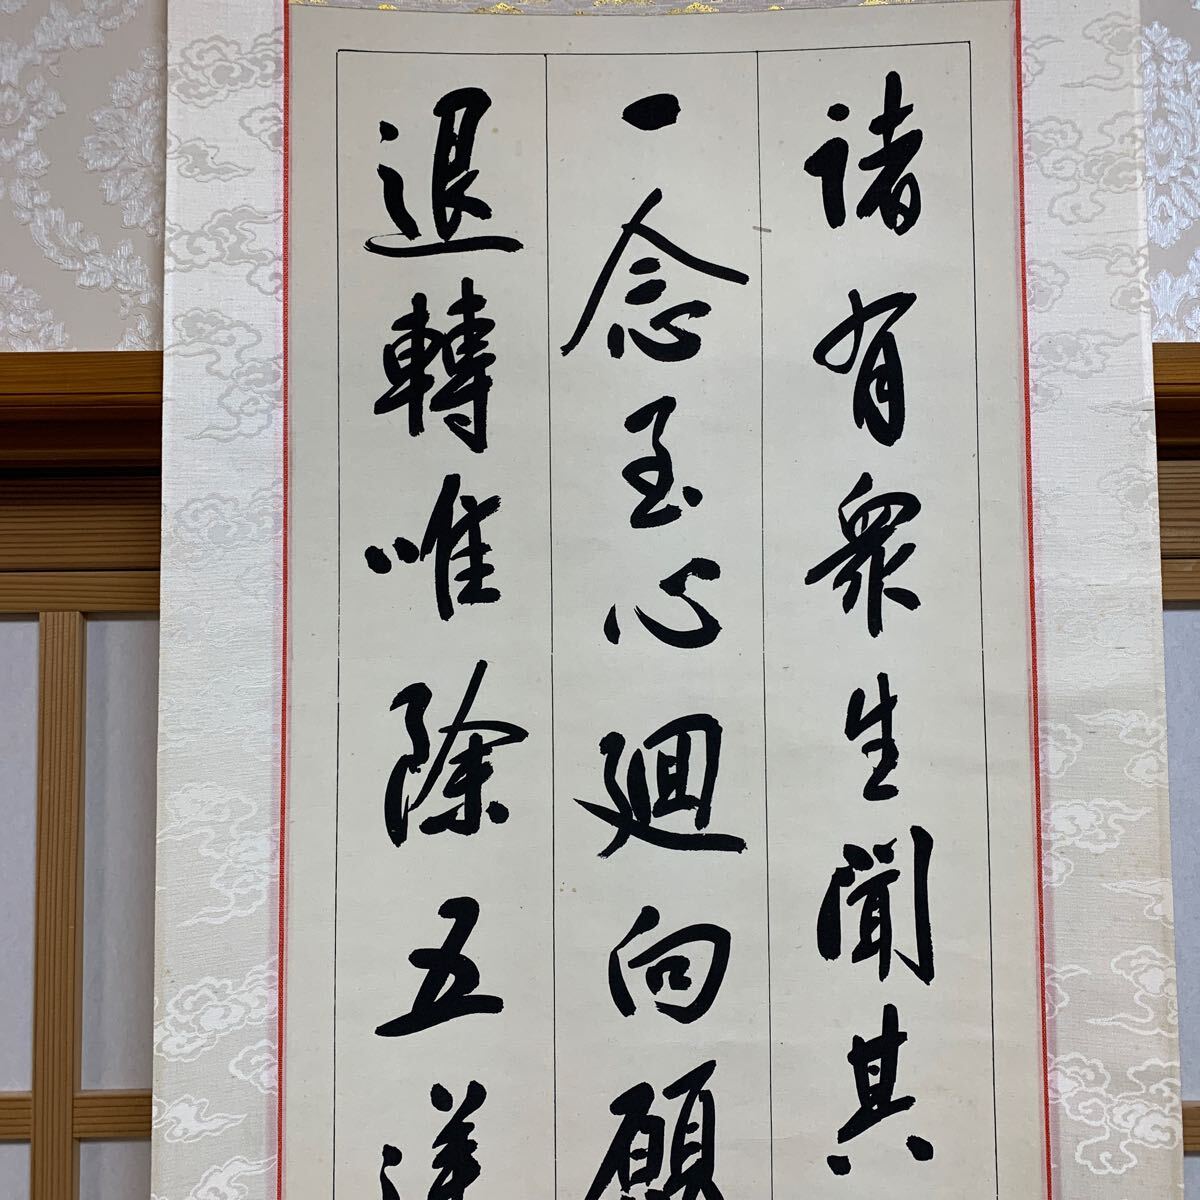 諸有衆生聞其
一念至心廻向願
退轉唯除五逆